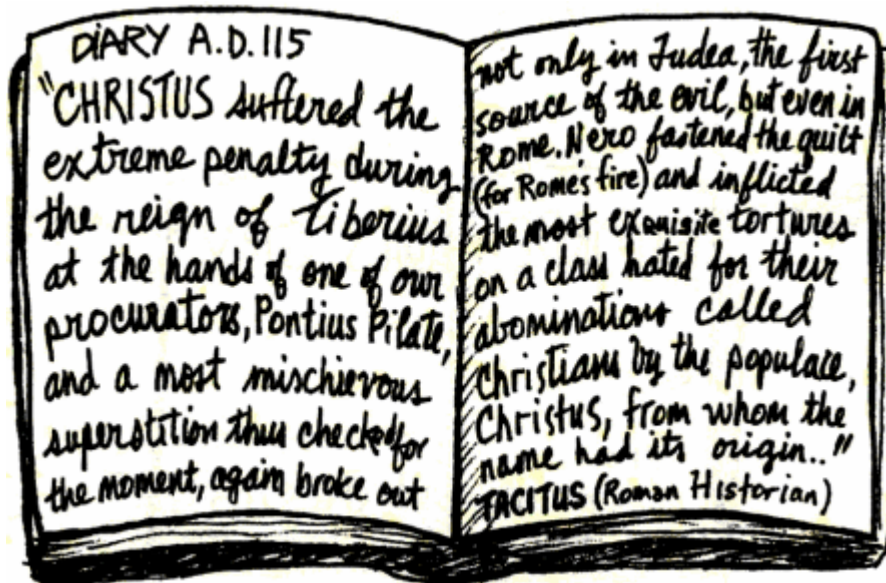 DIARY A.D. 115
"CHRISTUS suffered the
extreme penalty during
the reign of Tiberius
at the hands of one of our
procurators, Pontius Pilate,
and a most mischievous
superstition thus checked for
the moment, again broke out
not only in Judea, the first
source of the evil, but even in
Rome. Nero fastened the guilt
(for Rome's fire) and inflicted
the most exquisite tortures
on a class hated for their
abominations called
Christians by the populace,
Christus, from whom the
name had its origin.."
TACITUS (Roman Historian)